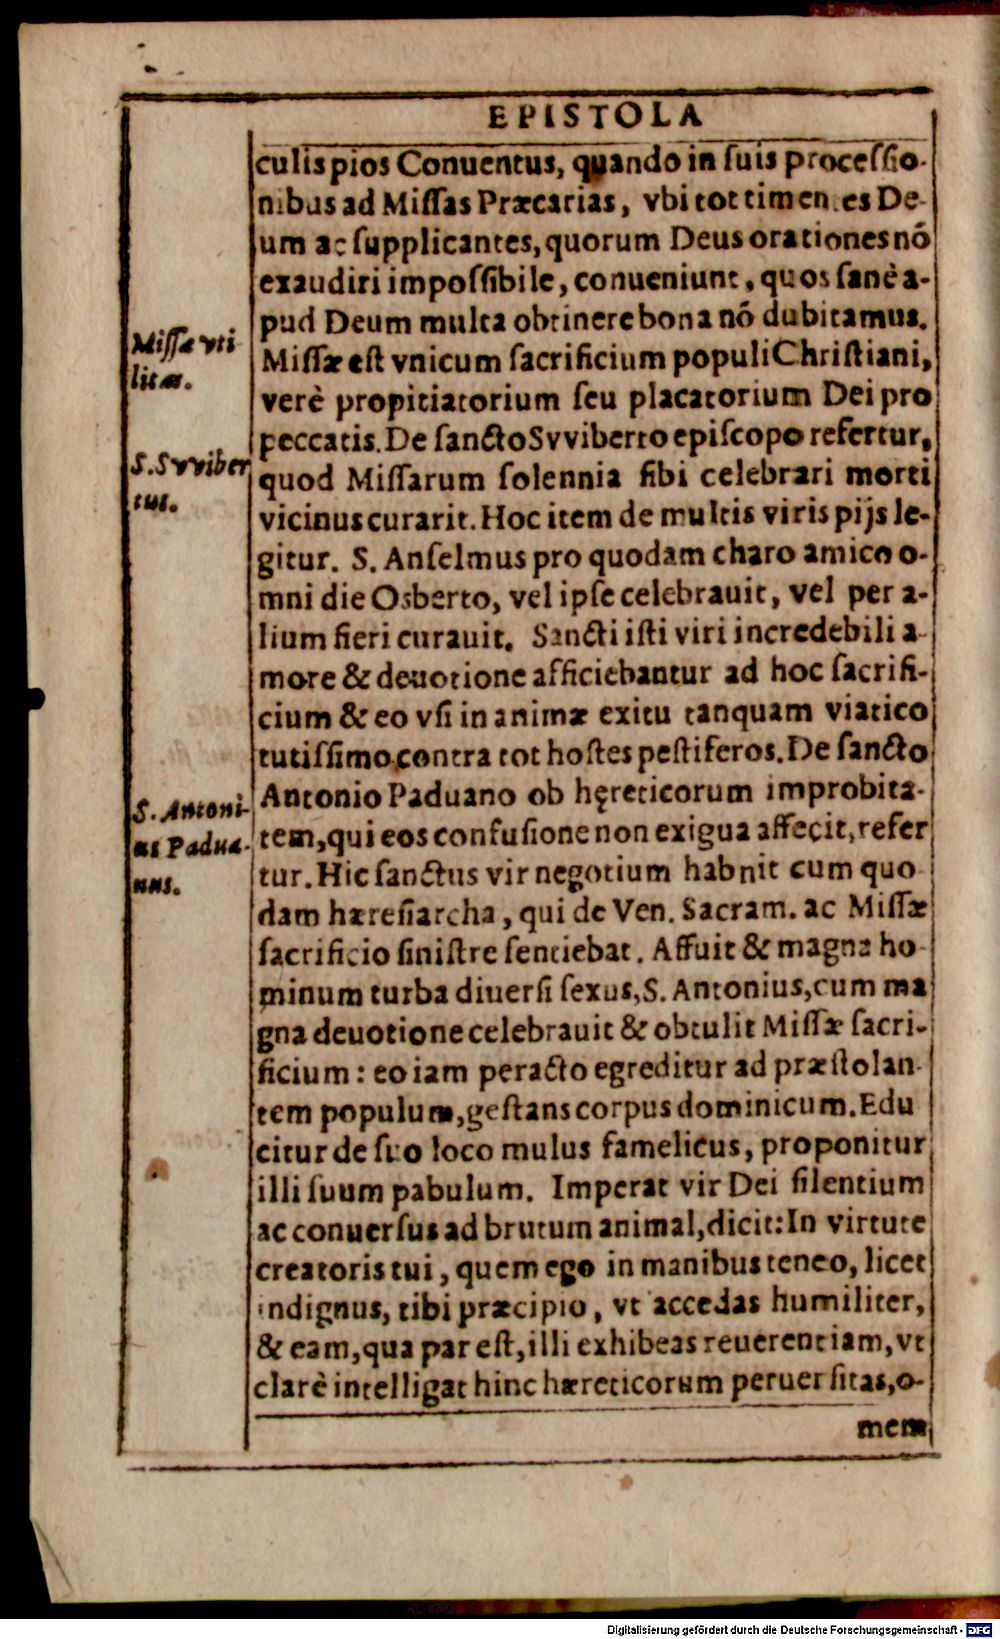 EPISTOLA
culis pios Conuentus, quando in suis processio-
nibus ad Missas Præcarias, vbi tot timentes De-
um ac supplicantes, quorum Deus orationes nõ
exaudiri impossibile, conueniunt, quos sanè a-
pud Deum multa obtinere bona nõ dubitamus.
Missæ est vnicum sacrificium populi Christiani,
verè propitiatorium seu placatorium Dei pro
peccatis. De sancto Svviberto episcopo refertur,
quod Missarum solennia sibi celebrari morti
vicinus curarit. Hoc item de multis viris pijs le-
gitur. S. Anselmus pro quodam charo amico o-
mni die Osberto, vel ipse celebrauit, vel per a-
lium fieri curauit. Sancti isti viri incredebili a-
more & deuotione afficiebantur ad hoc sacrifi-
cium & eo vsi in animæ exitu tanquam viatico
tutissimo contra tot hostes pestiferos. De sancto
Antonio Paduano ob hęreticorum improbita-
tem, qui eos confusione non exigua affecit, refer
tur. Hic sanctus vir negotium habnit cum quo
dam hæresiarcha, qui de Ven. Sacram. ac Missæ
sacrificio sinistre sentiebat. Affuit & magna ho-
minum turba diuersi sexus, S. Antonius, cum ma
gna deuotione celebrauit & obtulit Missæ sacri-
ficium: eo iam peracto egreditur ad præstolan-
tem populum, gestans corpus dominicum. Edu
citur de suo loco mulus famelicus, proponitur
illi suum pabulum. Imperat vir Dei silentium
ac conuersus ad brutum animal, dicit: In virtute
creatoris tui, quem ego in manibus teneo, licet
indignus, tibi præcipio, vt accedas humiliter,
& eam, qua par est, illi exhibeas reuerentiam, vt
clarè intelligat hinc hæreticorum peruersitas, o-
mem
Missæ vti
litas.
S. Svviber
tus.
S. Antoni-
us Padua-
nus.
Digitalisierung gefördert durch die Deutsche Forschungsgemeinschaft - DFG